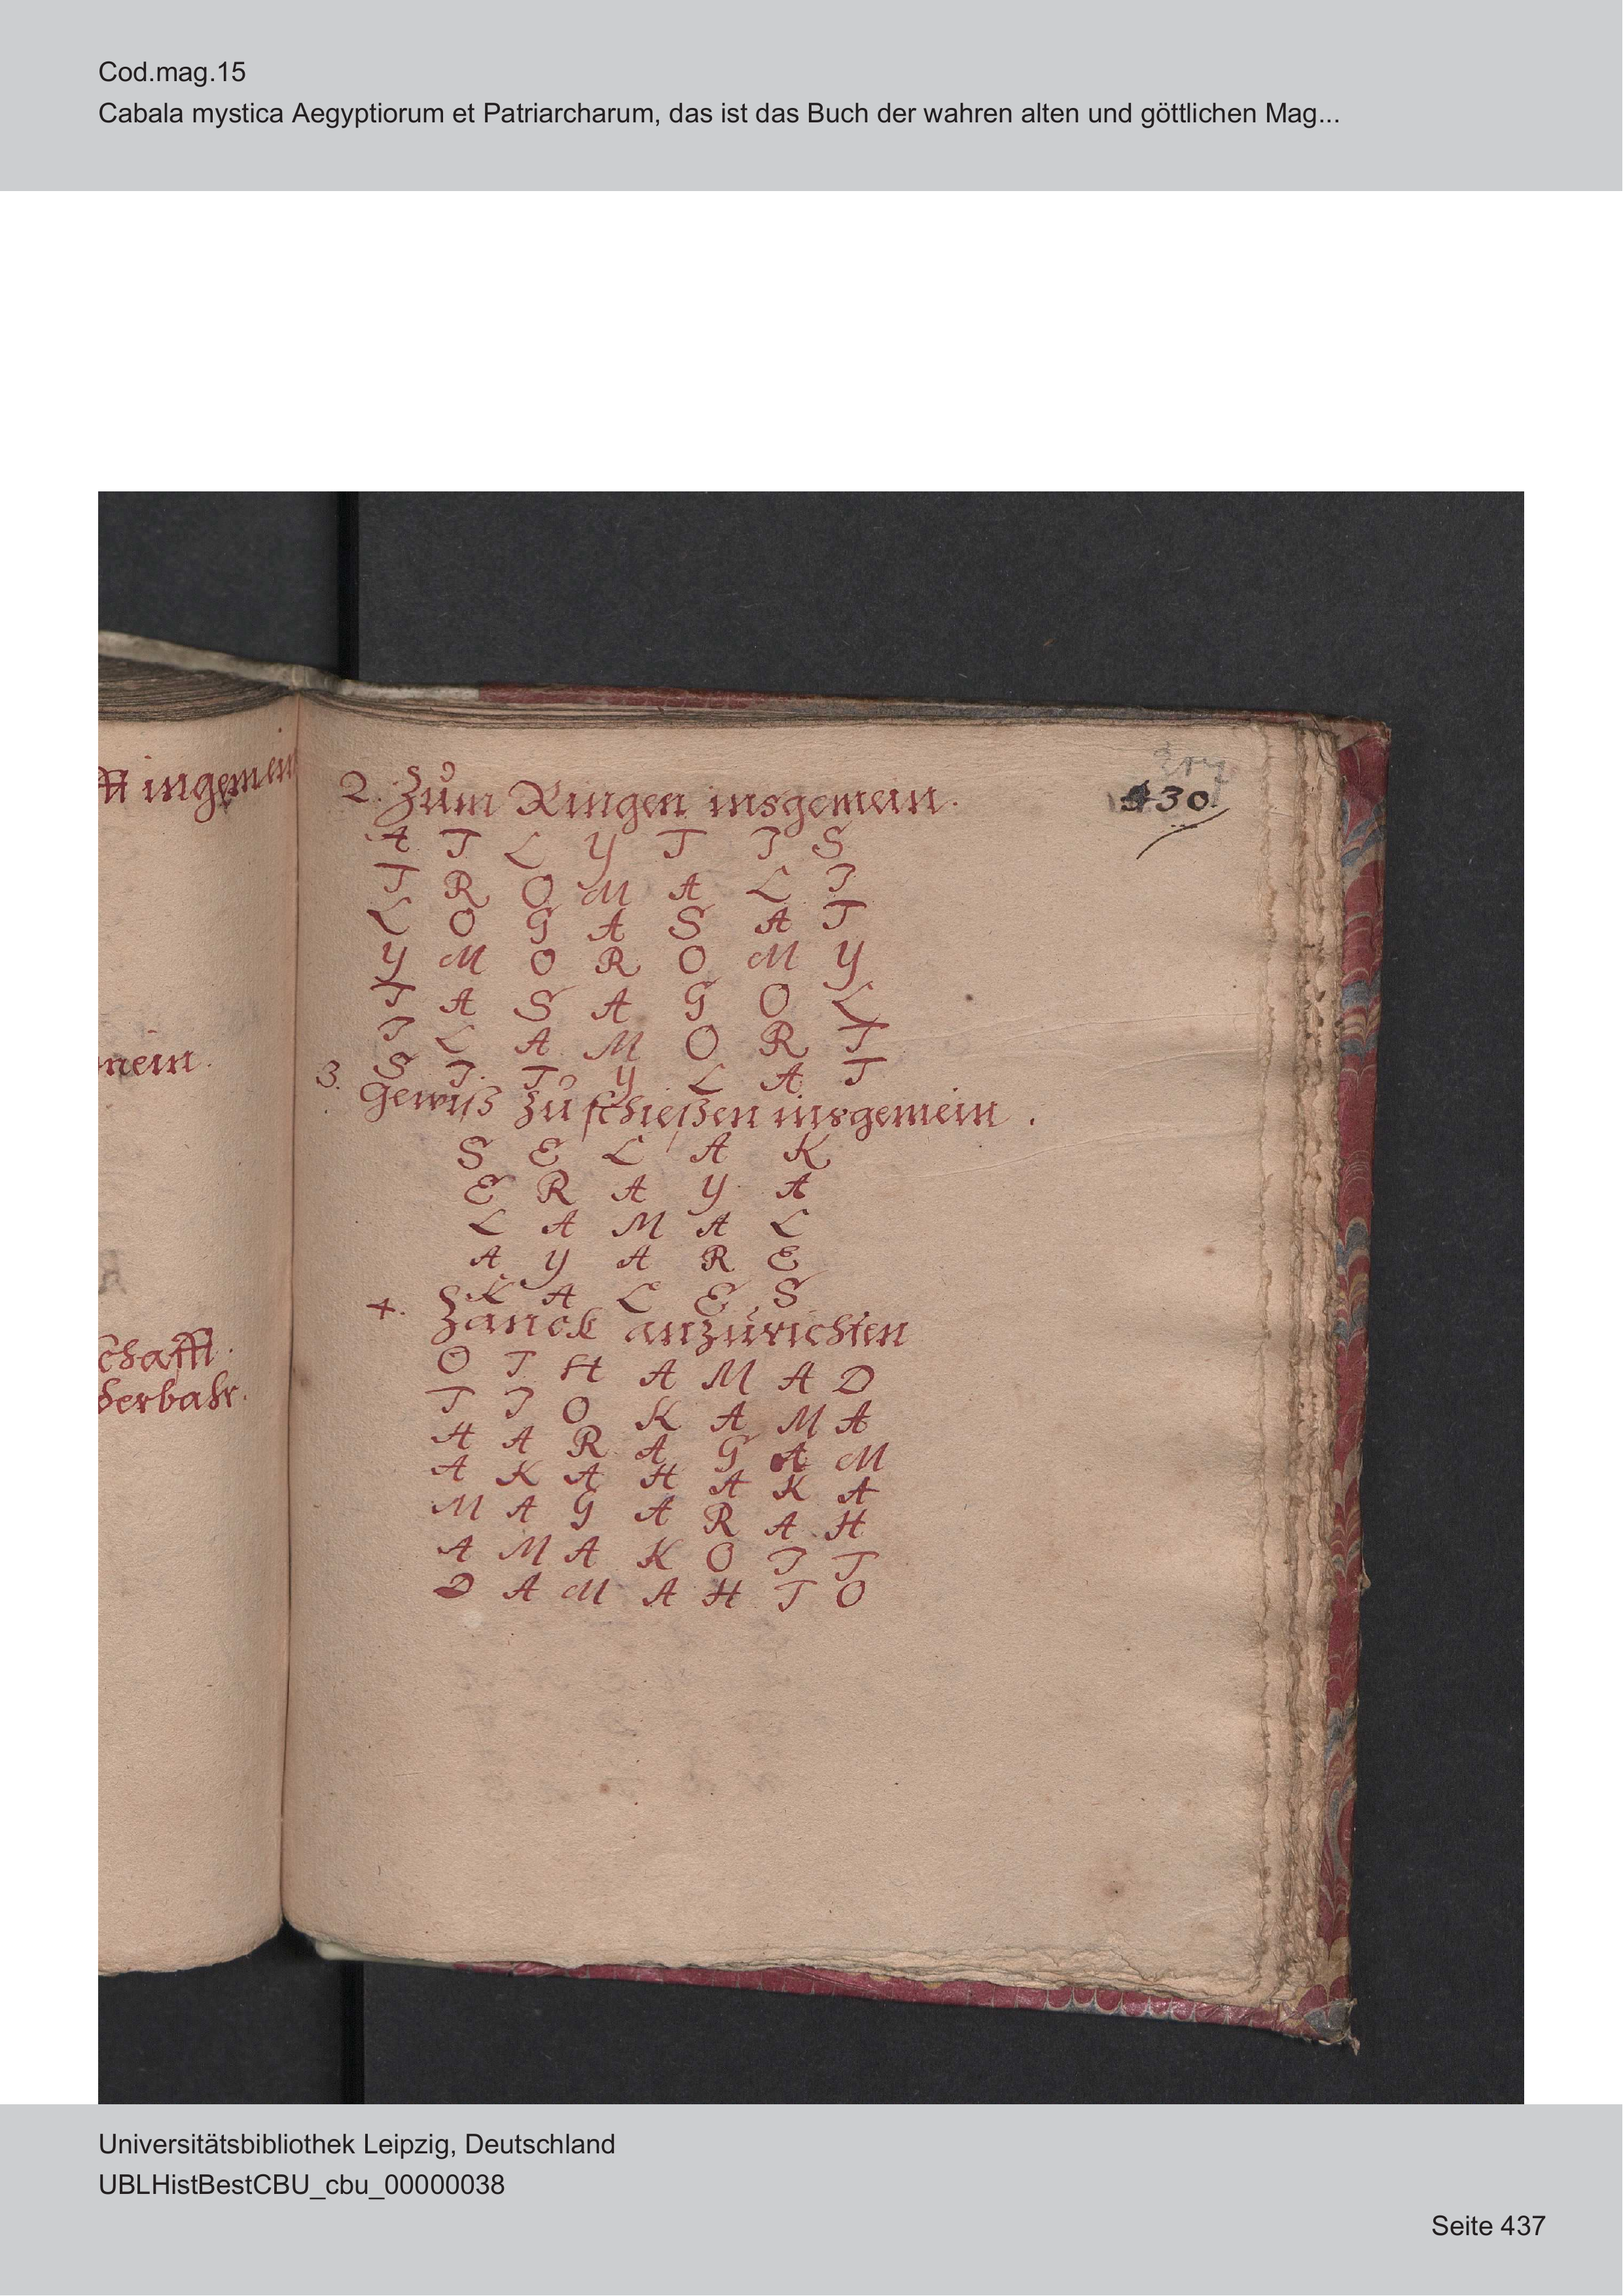 Cod.mag.15
Cabala mystica Aegyptiorum et Patriarcharum, das ist das Buch der wahren alten und göttlichen Mag...
ingemein
mein.
schafft.
derbahr.
430.
2. Zum Ringen insgemein.
A T L Y T I S
T R O M A L I
L O G A S A T
Y M O R O M Y
T A S A G O L
I L A M O R T
S I T Y L A T
3. Gewiß zu schießen insgemein.
S E L A K
E R A Y A
L A M A L
A Y A R E
K A L E S
4. Zanck anzurichten
O T H A M A D
T I O K A M A
H A R A G A M
A K A H A K A
M A G A R A H
A M A K O I T
D A M A H T O
Universitätsbibliothek Leipzig, Deutschland
UBLHistBestCBU_cbu_00000038
Seite 437